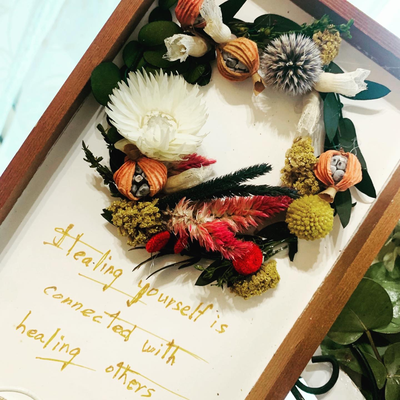 Healing yourself is
connected with
healing others